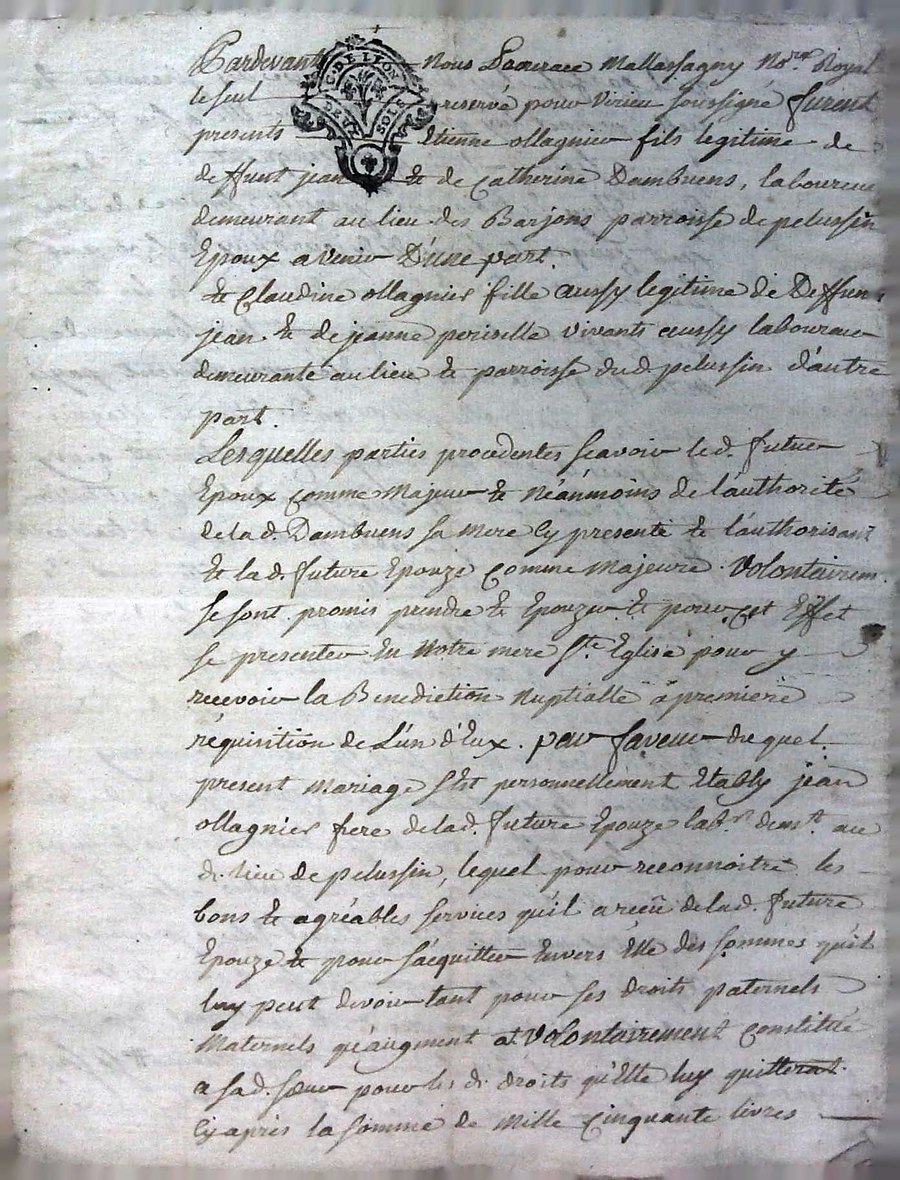 Pardevant Nous Laurrace Mallassagny No.re Royal
le seul reservé pour Virieu soussigné furent
presents Etienne ollagnier fils legitime de
deffunt jean & de Catherine Dambuens, laboureur
demeurant au lieu des Barjons parroisse de pelussin
Epoux avenir D'une part.
Et Claudine ollagnier fille aussy legitime de Deffun
jean & de jeanne periselle vivants aussy laboureur
demeurante au lieu & parroisse dud. pelussin d'autre
part.
Lesquelles parties procedentes scavoir led. futur
Epoux comme Majeur & néanmoins de l'authorité
de lad. Dambuens sa mere Cy presente & l'authorisant
Et lad. future Epouze Comme Majeure. Volontairem.
se sont promis prendre & Epouzer & pour cet Effet
se presenter En Notre mere Ste Eglise pour y
recevoir la Benediction Nuptialle à premiere
réquisition de L'un d'Eux. par faveur duquel
present Mariage s'Est personnellement Etably jean
ollagnier frere de lad. future Epouze lab.r dem.t au
d. lieu de pelussin, lequel pour reconnoitre les
bons & agréables services qu'il a reçu de lad. future
Epouze & pour s'acquitter Envers Elle des sommes qu'il
luy peut devoir tant pour ses droits paternels
Maternels qu'augment at Volontairement Constitué
a sad. sœur pour les d. droits qu'Elle luy quitterat.
Cy après la somme de Mille Cinquante livres
G. DE LYON
SOLS